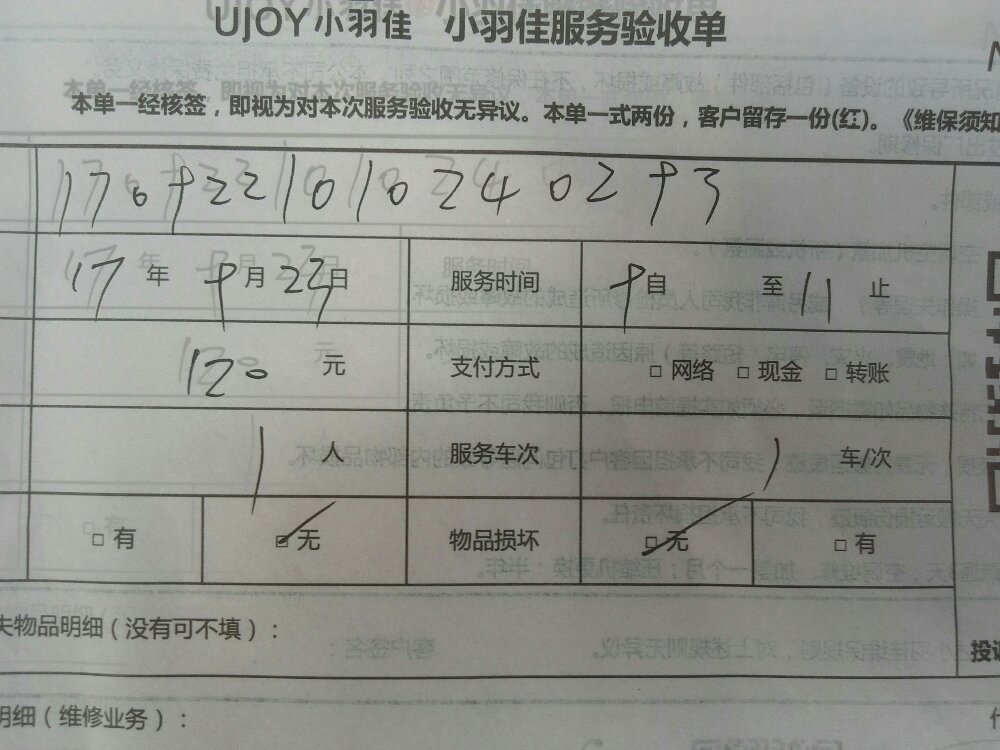 UJOY小羽佳 小羽佳服务验收单
本单一经核签，即视为对本次服务验收无异议。本单一式两份，客户留存一份(红)。《维保须知
170922101024029 3
17 年 9 月 23 日 服务时间 9 自 至 11 止
120 元 支付方式 □ 网络 □ 现金 □ 转账
1 人 服务车次 1 车/次
□ 有 ☑ 无 物品损坏 ☑ 无 □ 有
失物品明细（没有可不填）：
投诉
明细（维修业务）：